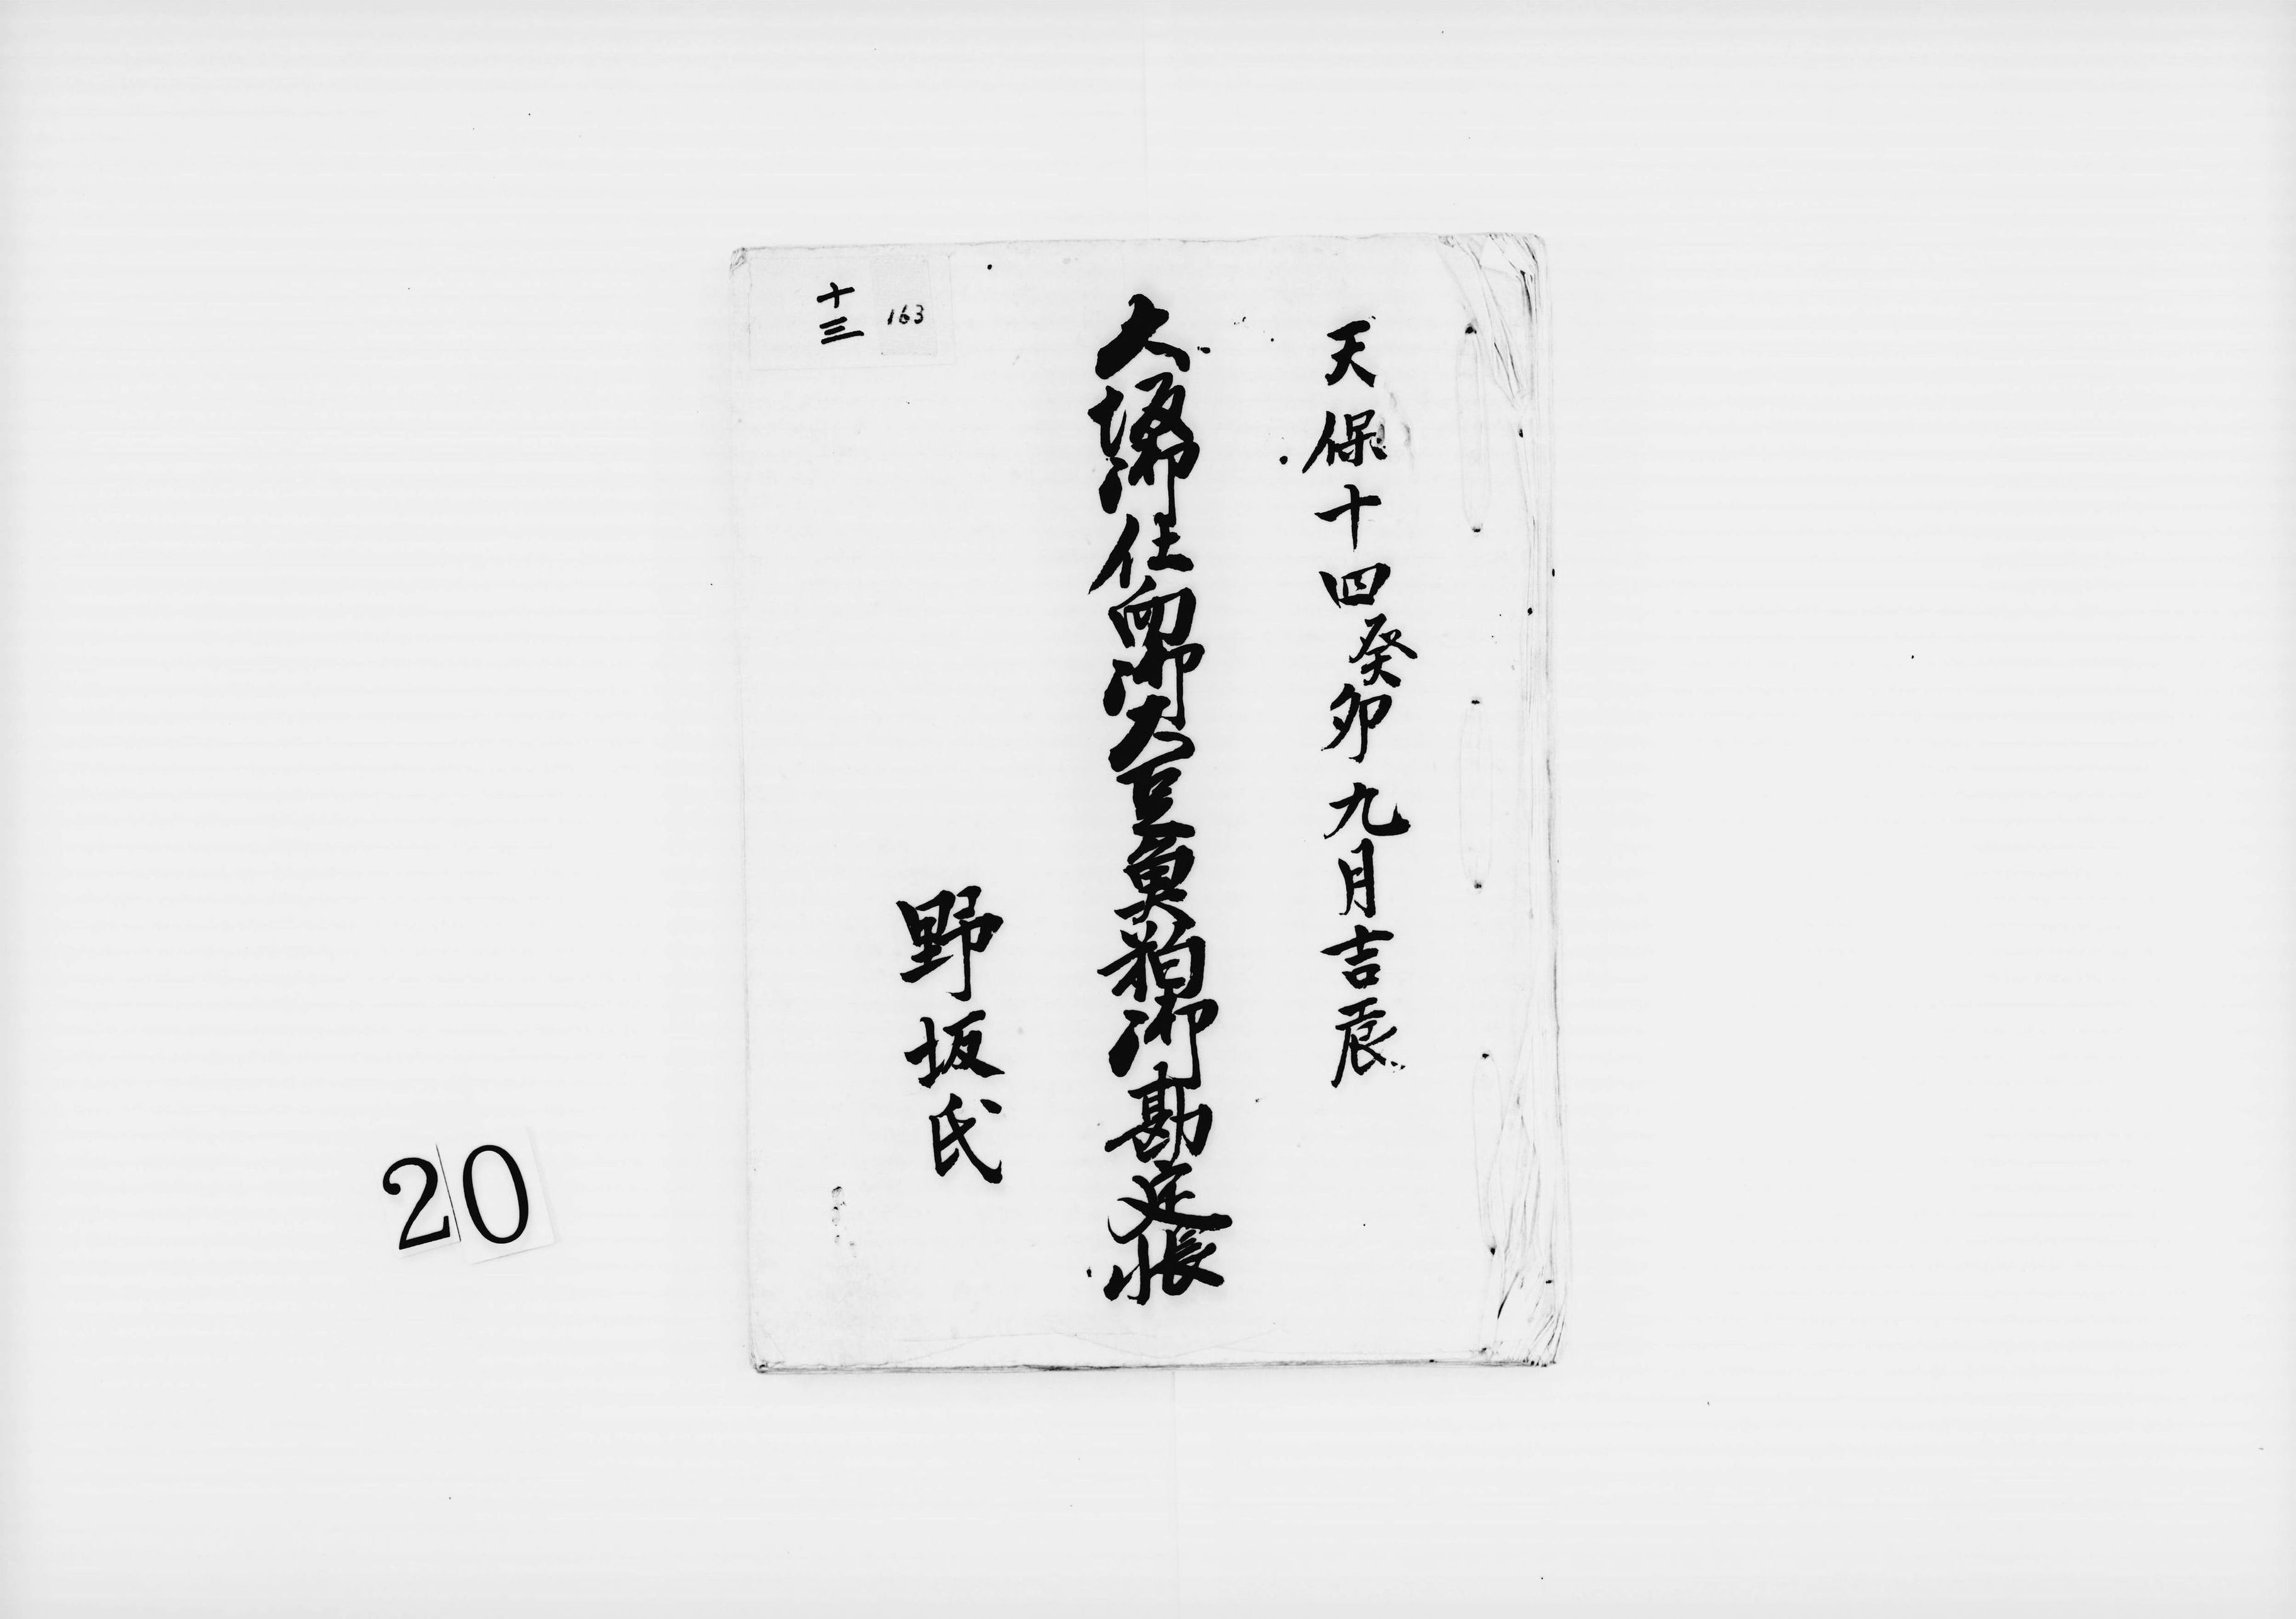 天保十四癸卯九月吉辰
大坂御仕向御大豆魚粕御勘定帳
野坂氏
163
十三
20